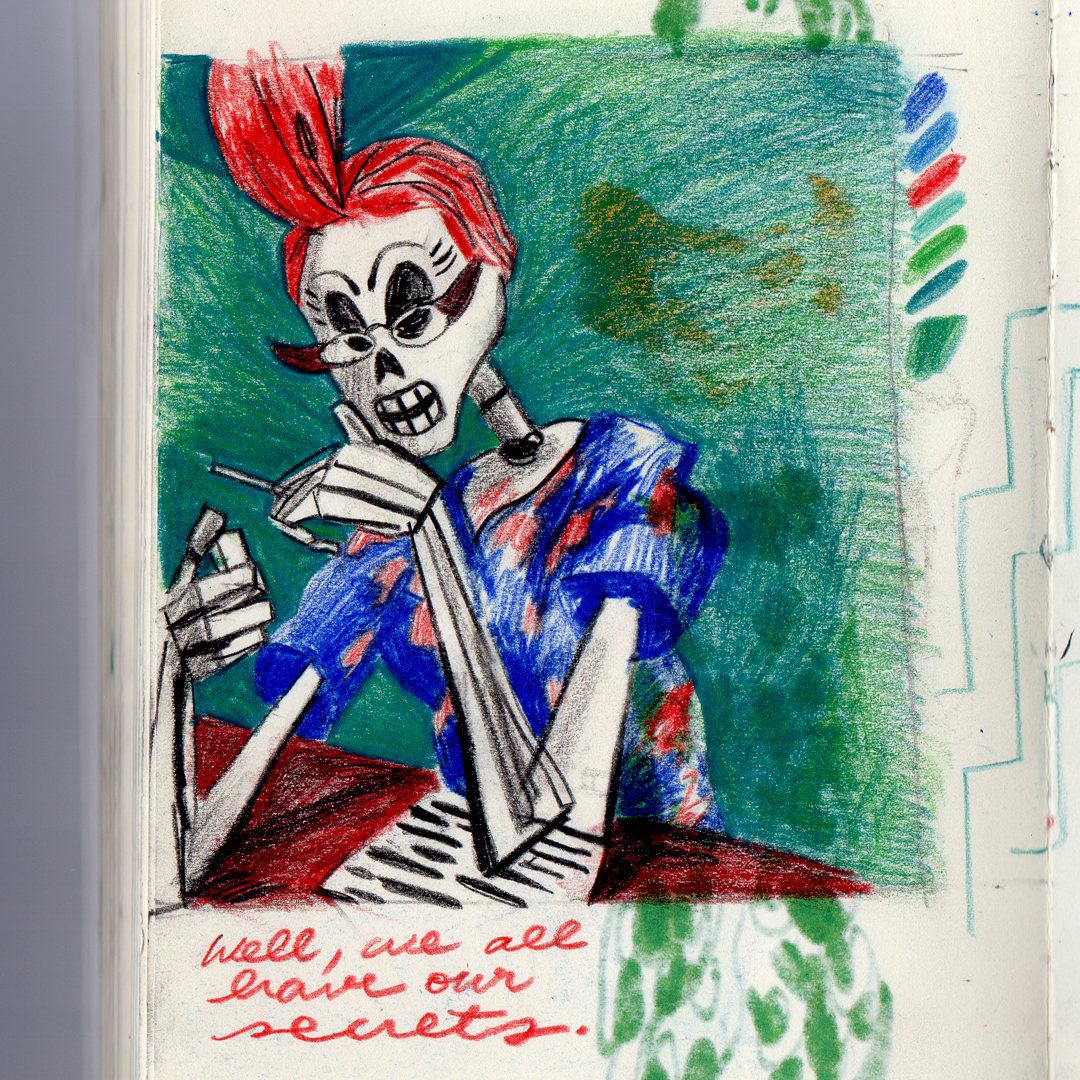 Well, we all
have our
secrets.